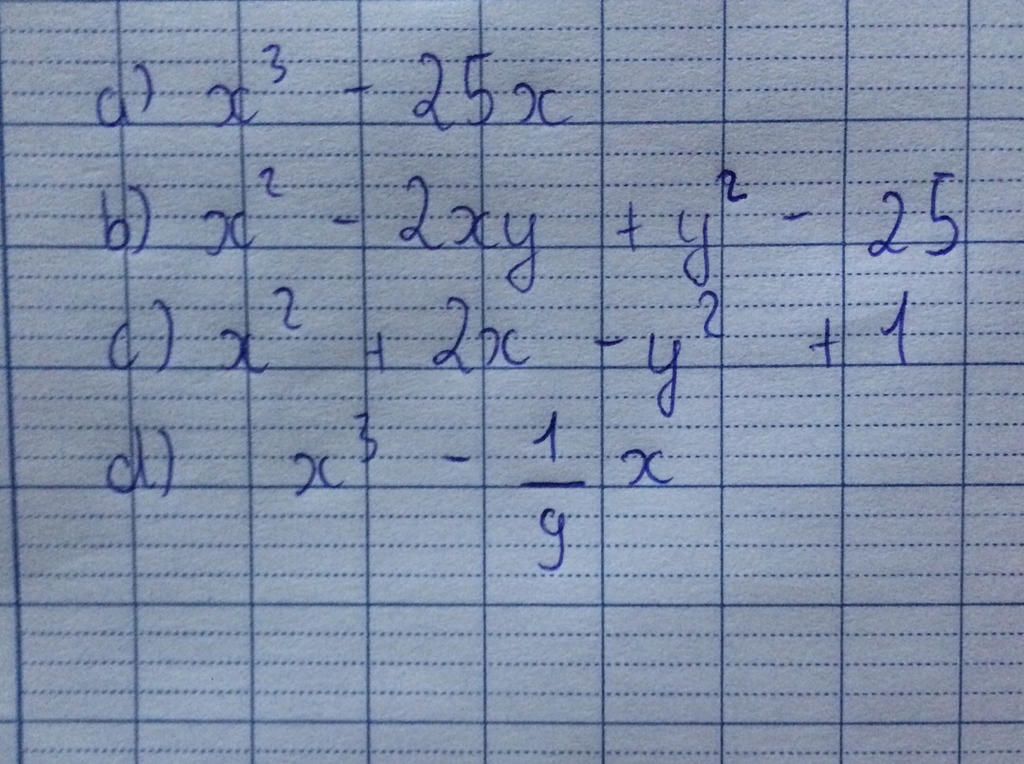 a) x³ - 25x
b) x² - 2xy + y² - 25
c) x² + 2x - y² + 1
d) x³ - 1/9 x